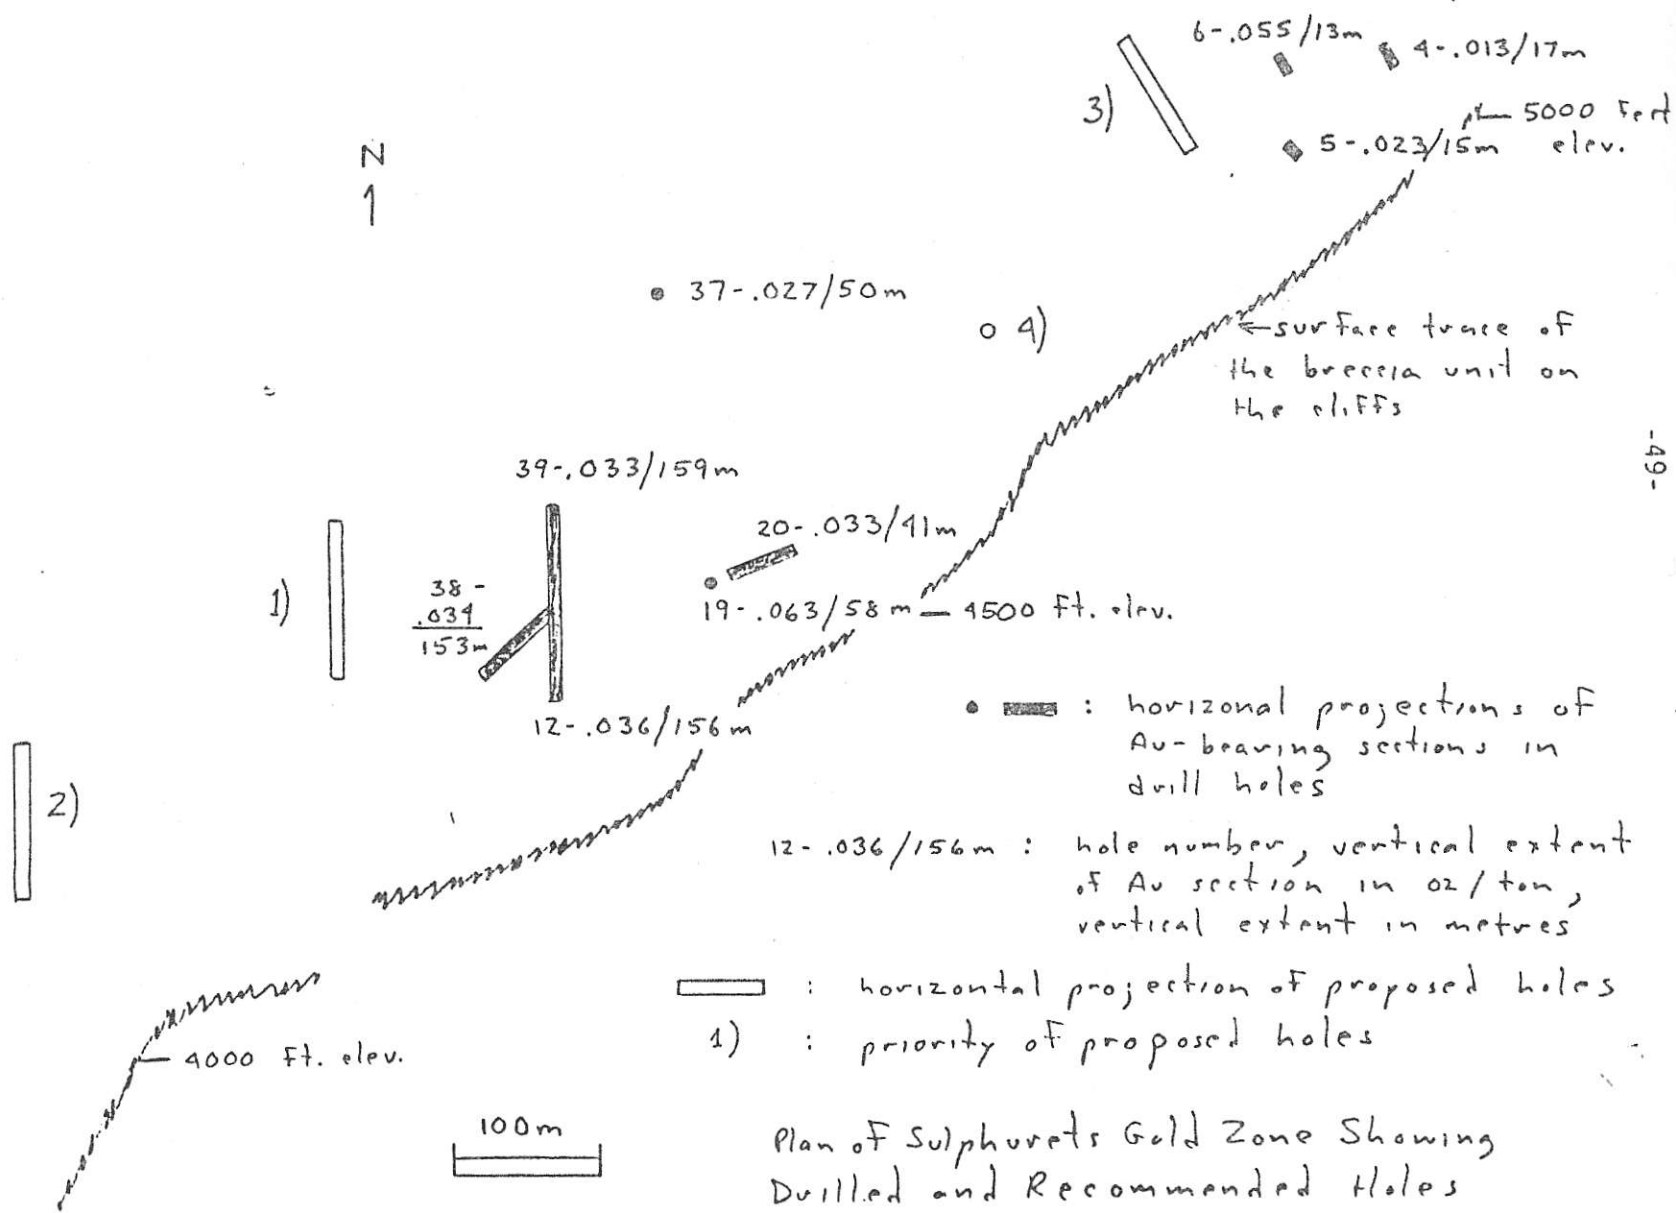 6-.055/13m
4-.013/17m
3)
5000 Feet
elev.
5-.023/15m
N
37-.027/50m
4)
surface trace of
the breccia unit on
the cliffs
-49-
39-.033/159m
20-.033/41m
1)
38-
.034
153m
19-.063/58m
4500 Ft. elev.
12-.036/156m
: horizonal projections of
Au-bearing sections in
drill holes
2)
12-.036/156m : hole number, vertical extent
of Au section in oz/ton,
vertical extent in metres
: horizontal projection of proposed holes
1) : priority of proposed holes
4000 Ft. elev.
100m
Plan of Sulphurets Gold Zone Showing
Drilled and Recommended Holes